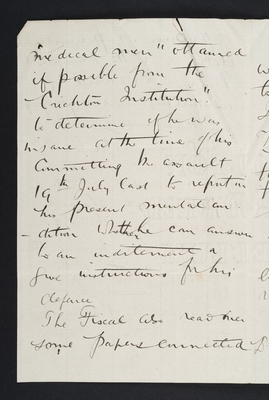 medical men" obtained
if possible from the
"Crichton Institution".
to determine if he was
insane at the time of his
Committing the assault
19th July last to report on
his present mental con
-dition whether he can answer
to an inditement &
give instructions for his
defence
The Fiscal also read me
some papers connected